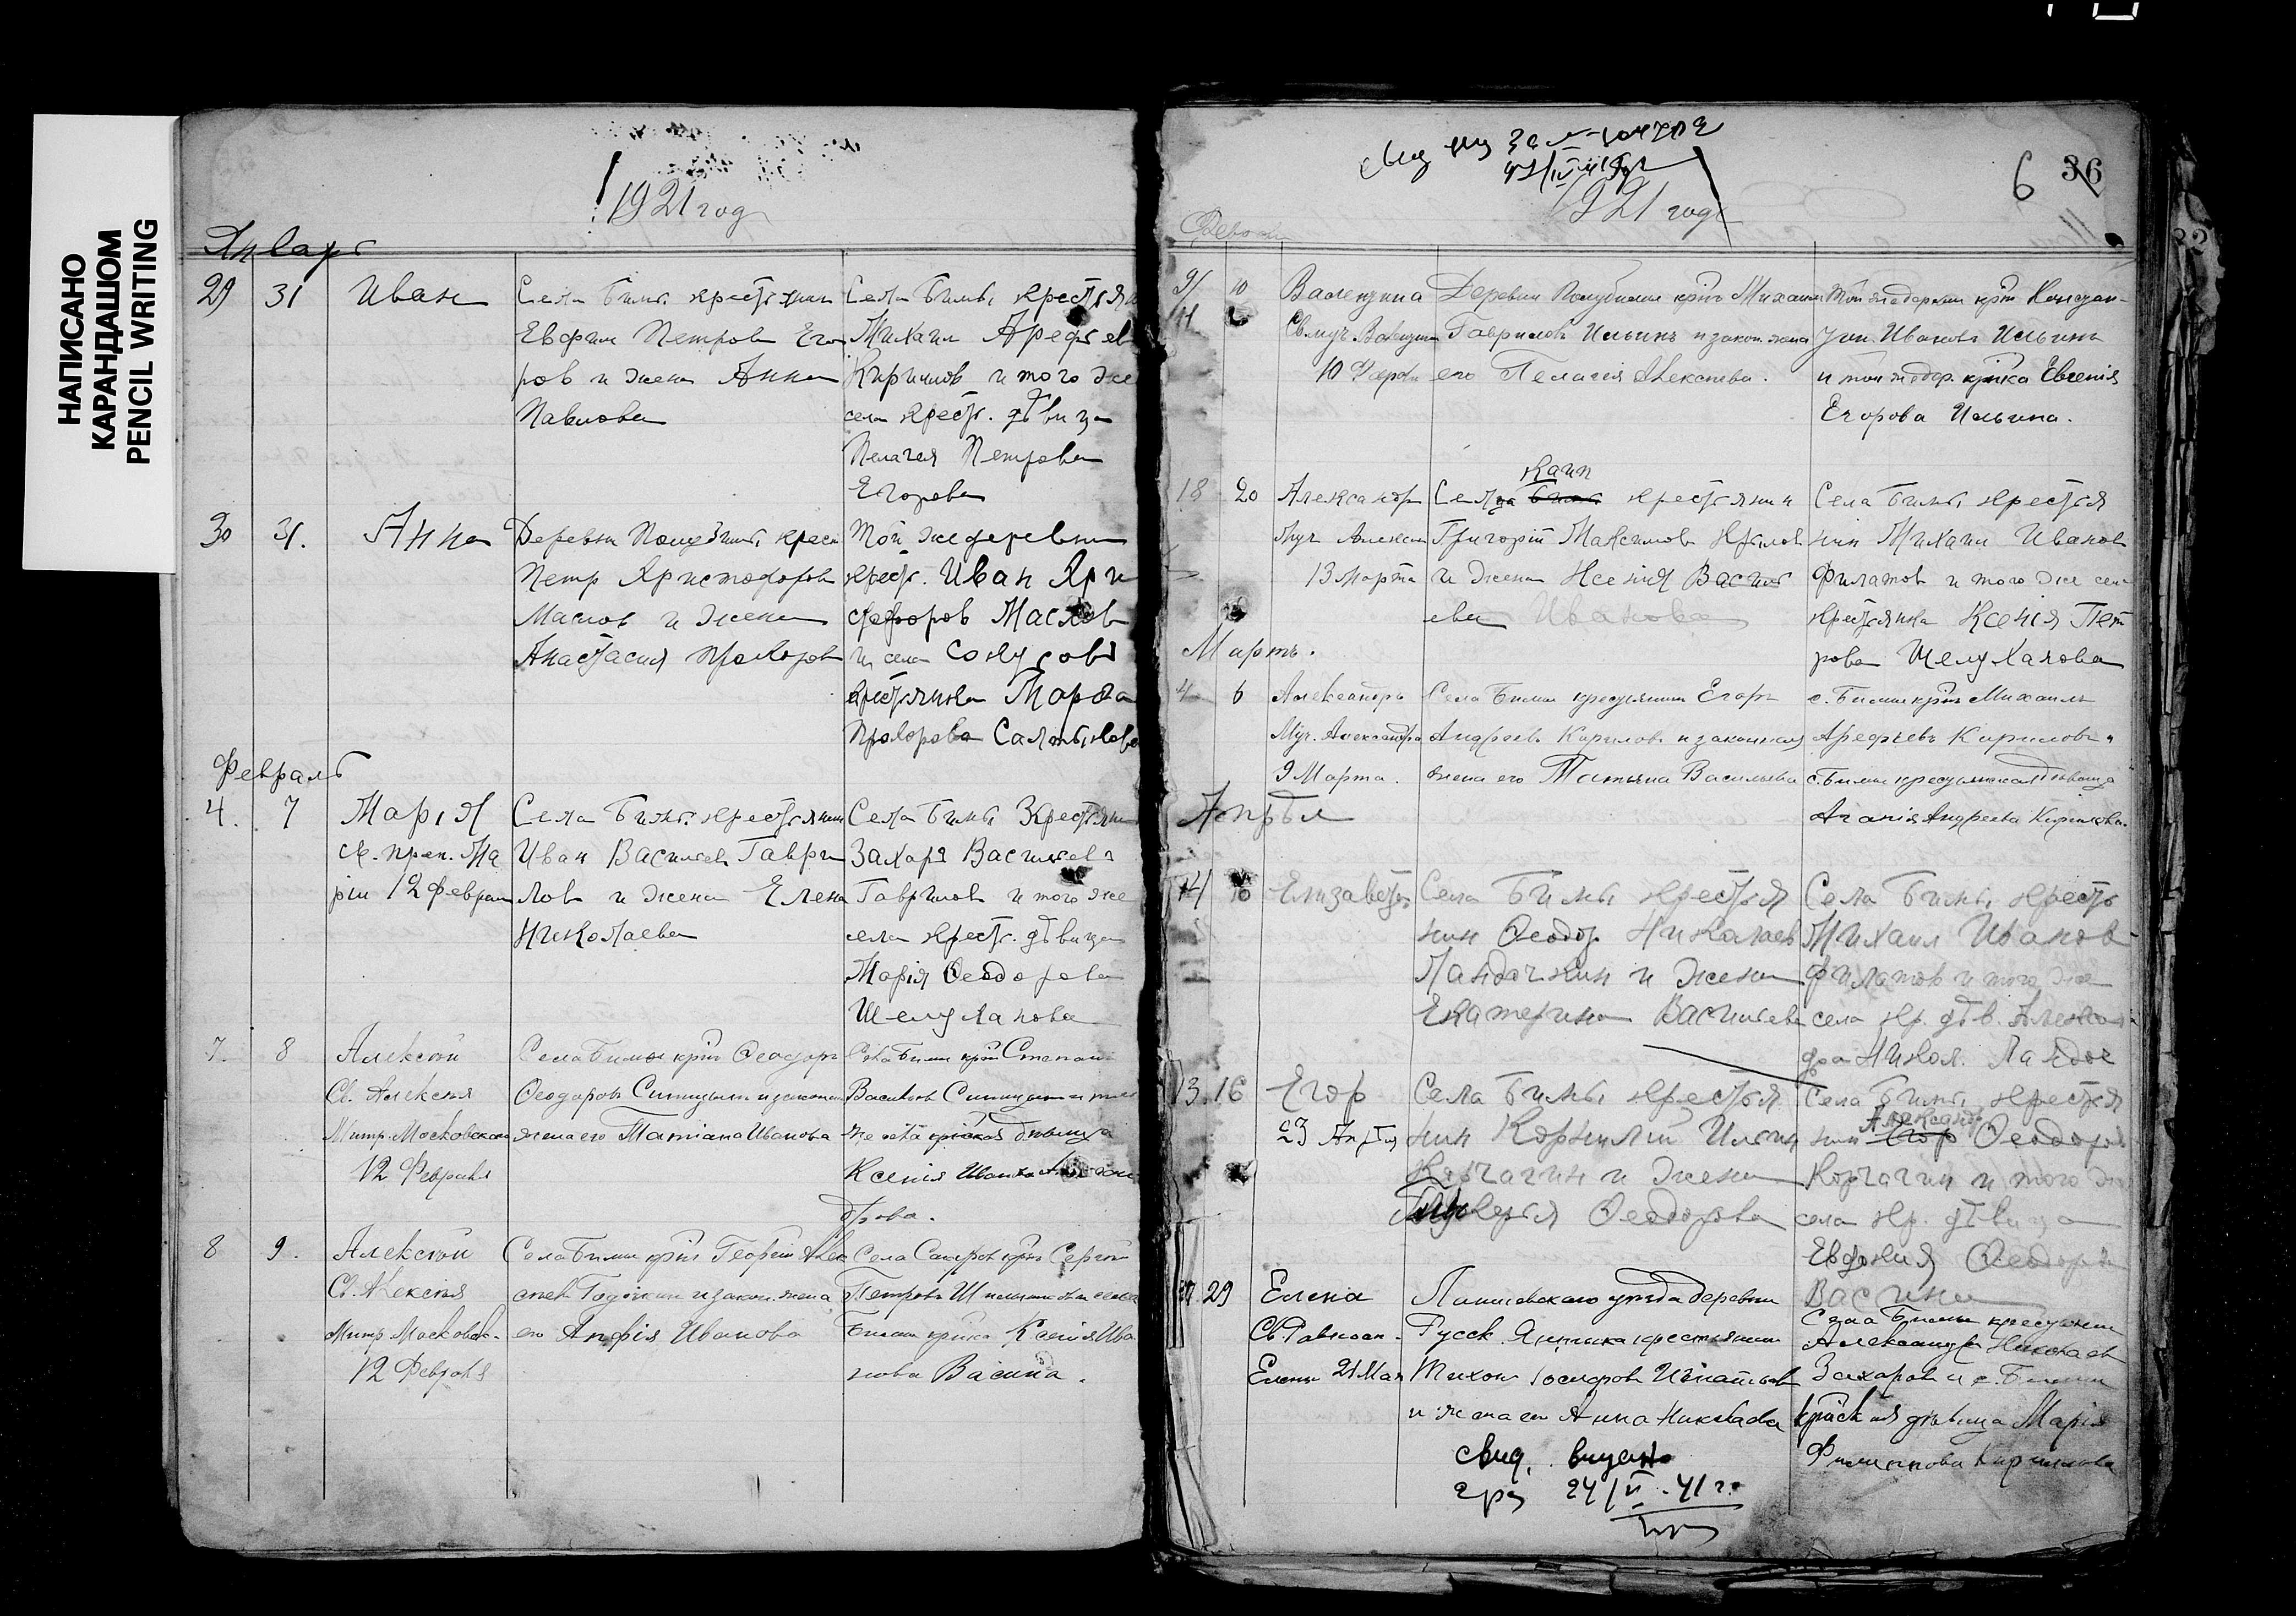 НАПИСАНО
КАРАНДАШОМ
PENCIL WRITING
1921 год
Январь
29 31 Иван
Села Бимы крестьянин
Евфим Петров Его
ров и жена Анна
Павлова
Села Бимы крестьян
Михаил Арефьев
Кирилов и того же
села крест. дѣвица
Пелагея Петрова
Егорова
30 31. Анна
Деревни крест
Петр Христофоров
Маслов и жена
Анастасия Прохоров
Той же деревни
крест. Иван Хри
стофоров Маслов
и села
крестьянка Марфа
Прохорова Салтыкова
Февраль
4. 7 Марія
св. прп. Ма
ріи 12 Феврал
Села Бимы крестьянин
Иван Васильев Гаври
лов и жена Елена
Николаева
Села Бимы крестьянин
Захар Васильев
Гаврилов и того же
села крест. дѣвица
Марія Ѳеодорова
Шелуханова
7. 8 Алексій
Св. Алексія
Митр. Московскаго
12 Февраля
Села Бимы крн Ѳеодоръ
Ѳеодоровъ Синицынъ и законная
жена его Татіана Иванова
Села Бимы крн Степанъ
Васильевъ Синицынъ и того
же села дѣвица
Ксенія
дрова.
8 9. Алексій
Св. Алексія
Митр. Московск.
12 Февраля
Села Бимы крн Георгій Алек
сѣевъ и закон. жена
его Анфія Иванова
Села крн Сергѣй
Петровъ села
Бимы крнка Ксенія Ива
нова Васина.
1921 года
6 36
Феврал
9/ 10
11
Валентина
Св. муч. Валентин
10 Феврал
Деревни крнъ Михаил
Гавриловъ Ильинъ и закон. жена
его Пелагея Алексѣева.
Той же деревни крн Констан-
тин Ивановъ Ильинъ
и той же дер. крнка Евгенія
Егорова Ильина.
18 20 Александр
Муч Алексан
13 Марта
Каин
Села Бимы крестьянин
Григорій Максимов Крылов
и жена Ксенія Василь
ева Иванова
Села Бимы крестья
нин Михаил Иванов
Филатов и того же села
крестьянка Ксенія Пет
рова Шелуханова
Мартъ.
4 6 Александра
Муч. Александра
9 Марта.
Села Бимы крестьянин Егоръ
Андреевъ Кириловъ и законная
жена его Татьяна Васильева
с. Бимы крнъ Михаилъ
Арефьевъ Кириловъ и
с. Бимы крестьянская дѣвица
Агапія Андреева Кирилова.
Апрѣль
14 16 Елизавета
Села Бимы крестья
нин Ѳеодор Николаев
Ландочкин и жена
Екатерина Васильева
Села Бимы кресть
Михаил Иванов
Филатов и того же
села кр. дѣв. Алексан
дра Никол. Ландоч
13. 16 Егор
23 Апрѣля
Села Бимы крестья
нин Корнилій Ильин
Корчагин и жена
Ѳеодорова
Села Бимы крестья
Александр
нин Егор Ѳеодоров
Корчагин и того же
села кр. дѣвица
Евдокия Ѳеодоров
Васина
29 Елена
Св. Равноап.
Елены 21 Мая
Лаишевскаго уѣзда деревни
Русск. крестьянин
Тихон Іосифов Игнатьев
и жена его Анна Николаева
Села Бимы крестьянин
Александр Николаев
Захаров и с. Бимы
крнская дѣвица Марія
Филиппова Кирилова
свид. выдано
24/II-41 г.